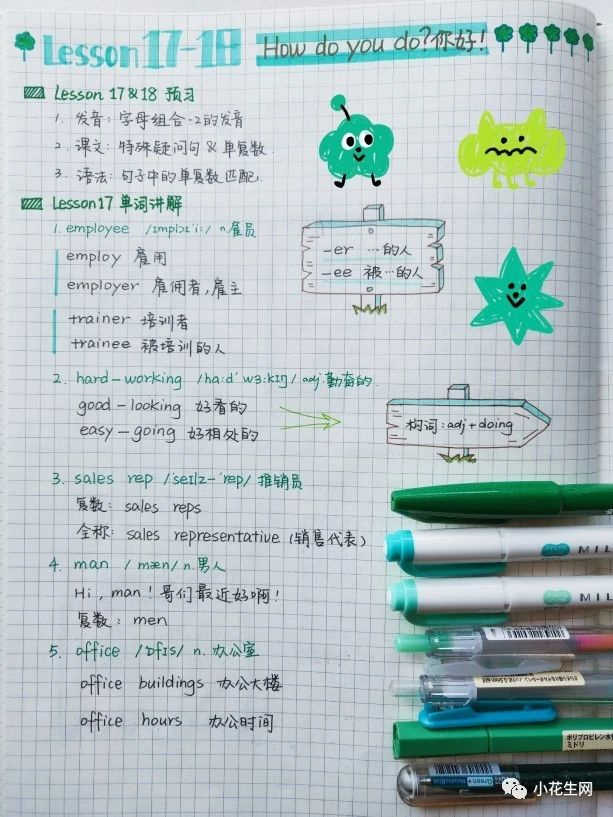 Lesson 17-18 How do you do?你好!
Lesson 17&18 预习
1. 发音:字母组合-2的发音
2. 课文:特殊疑问句&单复数
3. 语法:句子中的单复数匹配.
Lesson17 单词讲解
1. employee /ɪmplɔɪˈiː/ n.雇员
employ 雇用
employer 雇佣者,雇主
trainer 培训者
trainee 被培训的人
-er …的人
-ee 被…的人
2. hard-working /hɑːdˈwɜːkɪŋ/ adj.勤奋的.
good-looking 好看的
easy-going 好相处的
构词:adj+doing
3. sales rep /ˈseɪlz-ˈrep/ 推销员
复数: sales reps
全称: sales representative (销售代表)
4. man /mæn/ n.男人
Hi, man! 哥们最近好啊!
复数: men
5. office /ˈɒfɪs/ n. 办公室
office buildings 办公大楼
office hours 办公时间
MIL
MIL
ポリプロピレン水
ミドリ
小花生网